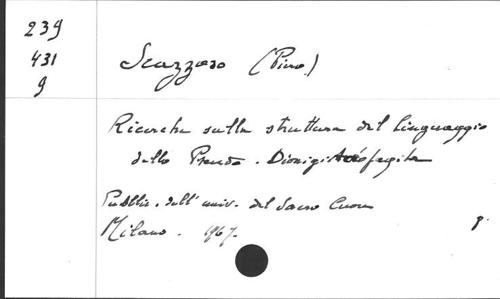 239
431
9
Scazzoso (Piero)
Ricerche sulla struttura del linguaggio
dello Pseudo-Dionigi Areofagita
Pubblic. dell' univ. del Sacro Cuore
Milano. 1967.
8°